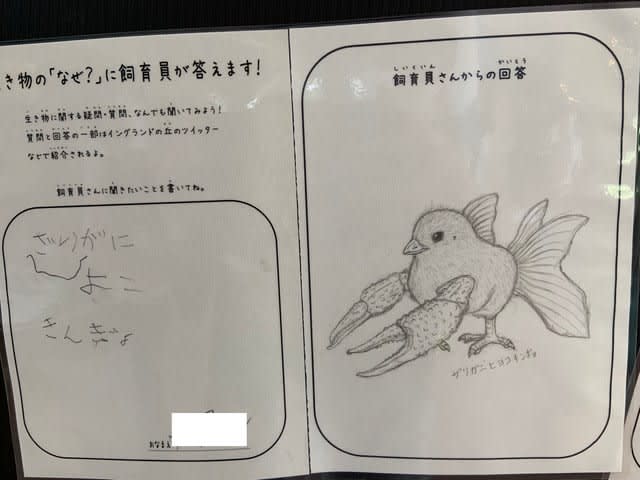 き物の「なぜ?」に飼育員が答えます!
生き物に関する疑問・質問、なんでも聞いてみよう!
質問と回答の一部はイングランドの丘のツイッター
などで紹介されるよ。
飼育員さんに聞きたいことを書いてね。
ざりがに
ひよこ
きんぎょ
おなまえ
しいくいん かいとう
飼育員さんからの回答
ザリガニヒヨコキンギョ